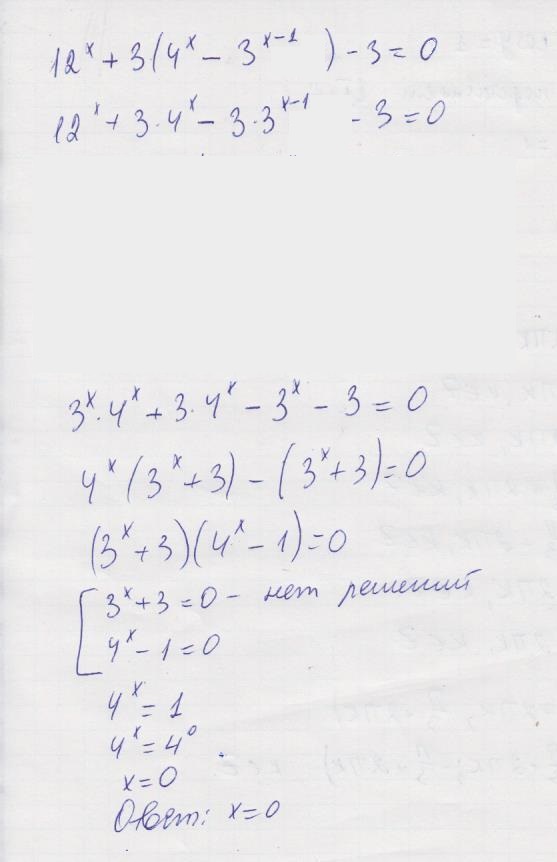 12^x + 3(4^x - 3^{x-1}) - 3 = 0
12^x + 3·4^x - 3·3^{x-1} - 3 = 0
3^x·4^x + 3·4^x - 3^x - 3 = 0
4^x(3^x + 3) - (3^x + 3) = 0
(3^x + 3)(4^x - 1) = 0
[ 3^x + 3 = 0 - нет решений
4^x - 1 = 0
4^x = 1
4^x = 4^0
x = 0
Ответ: x = 0